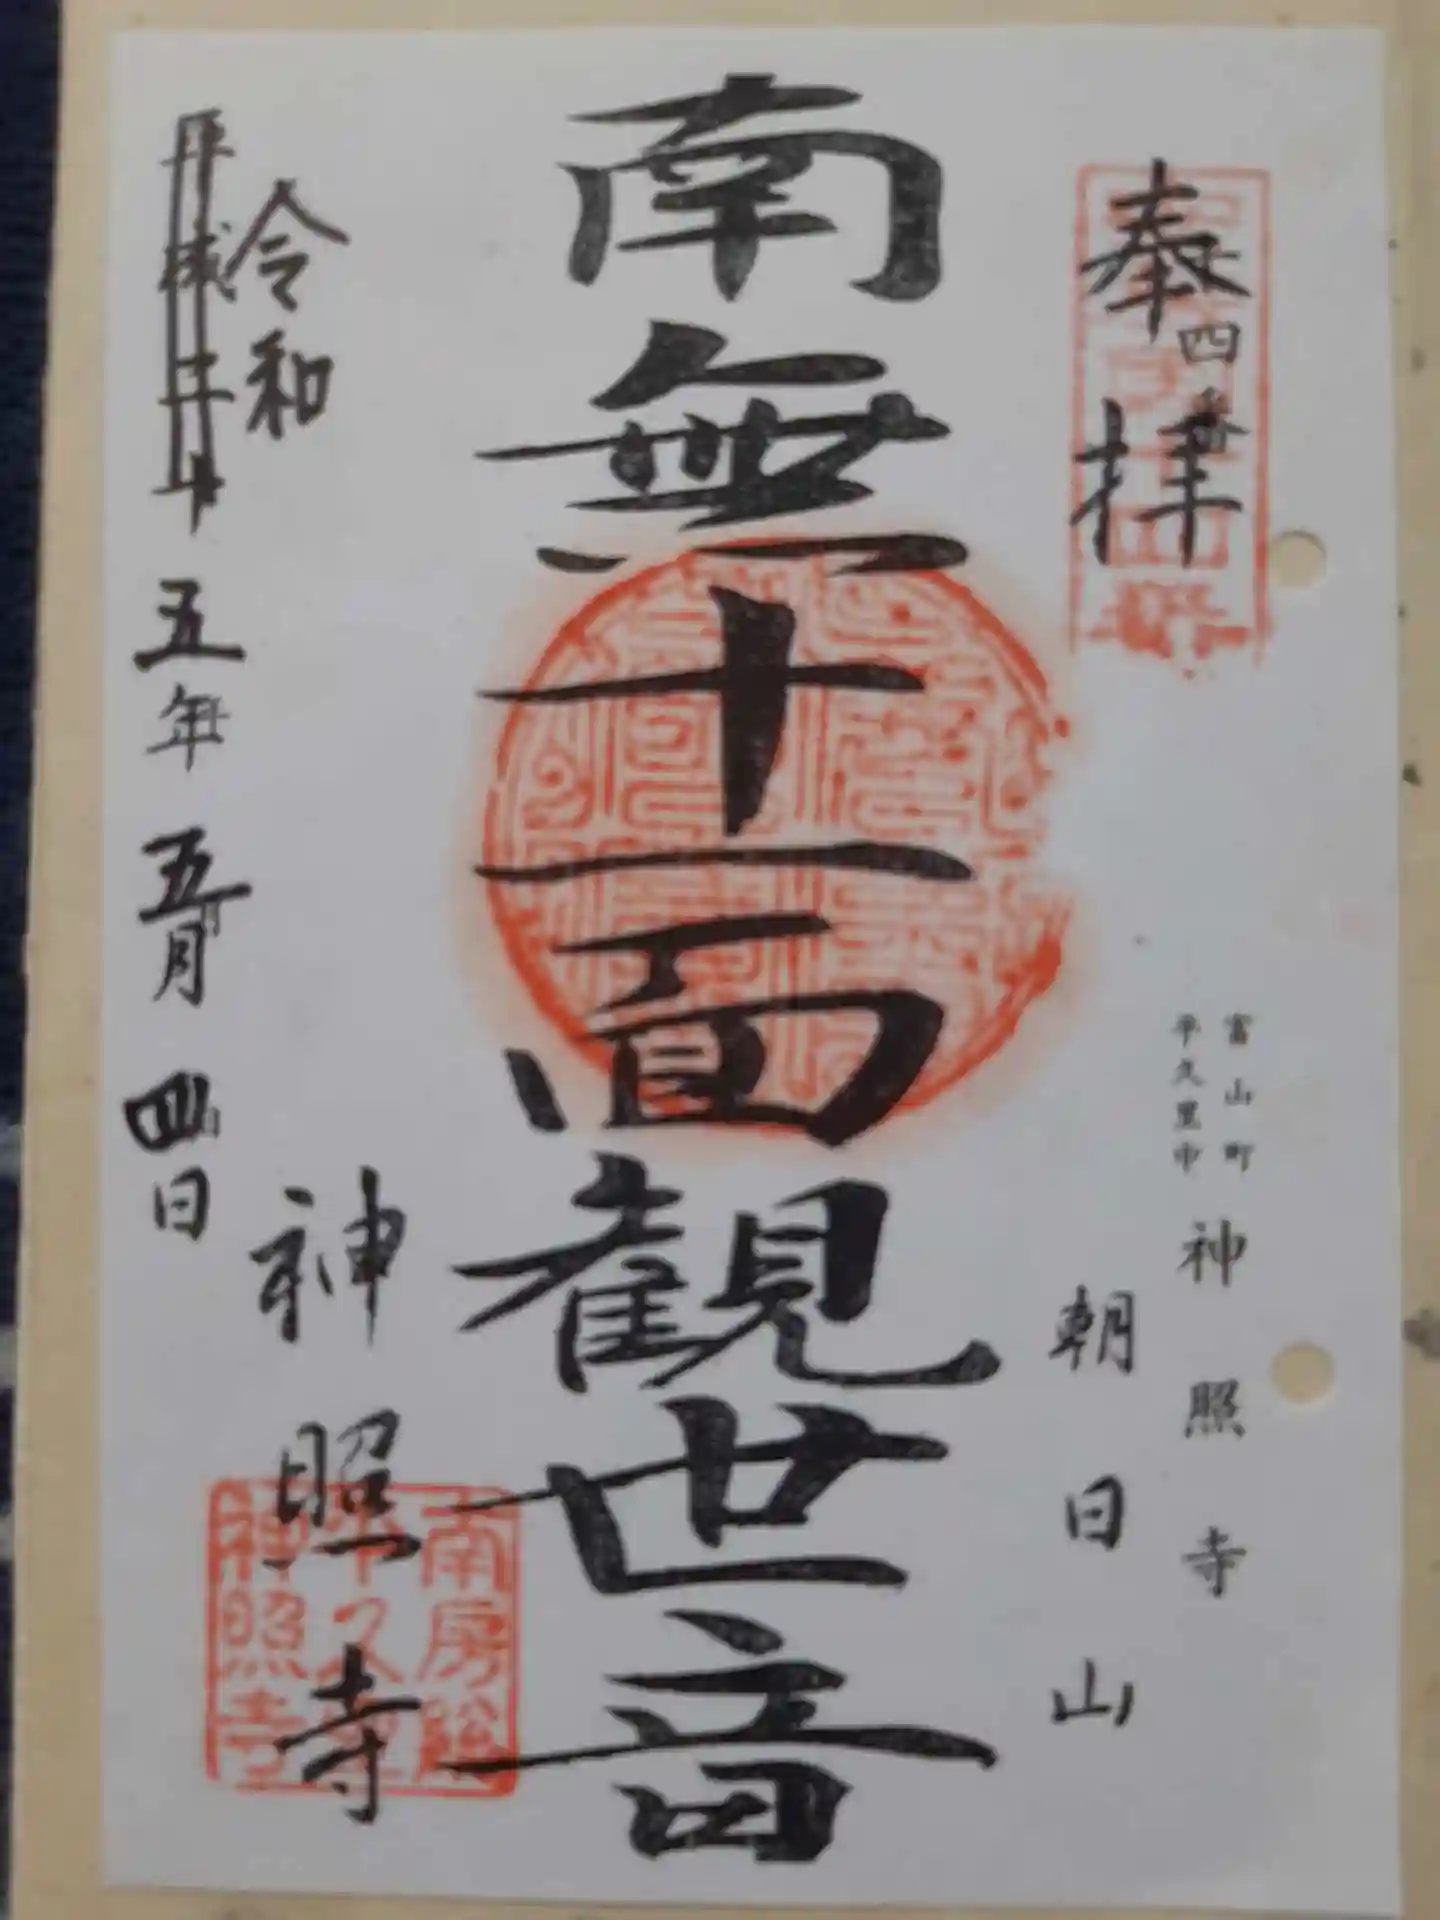 奉拝
四番
富山町
平久里中
神照寺
朝日山
南無十一面観世音
令和
平成 年
五年五月四日
神照寺
南房総
平久里
神照寺